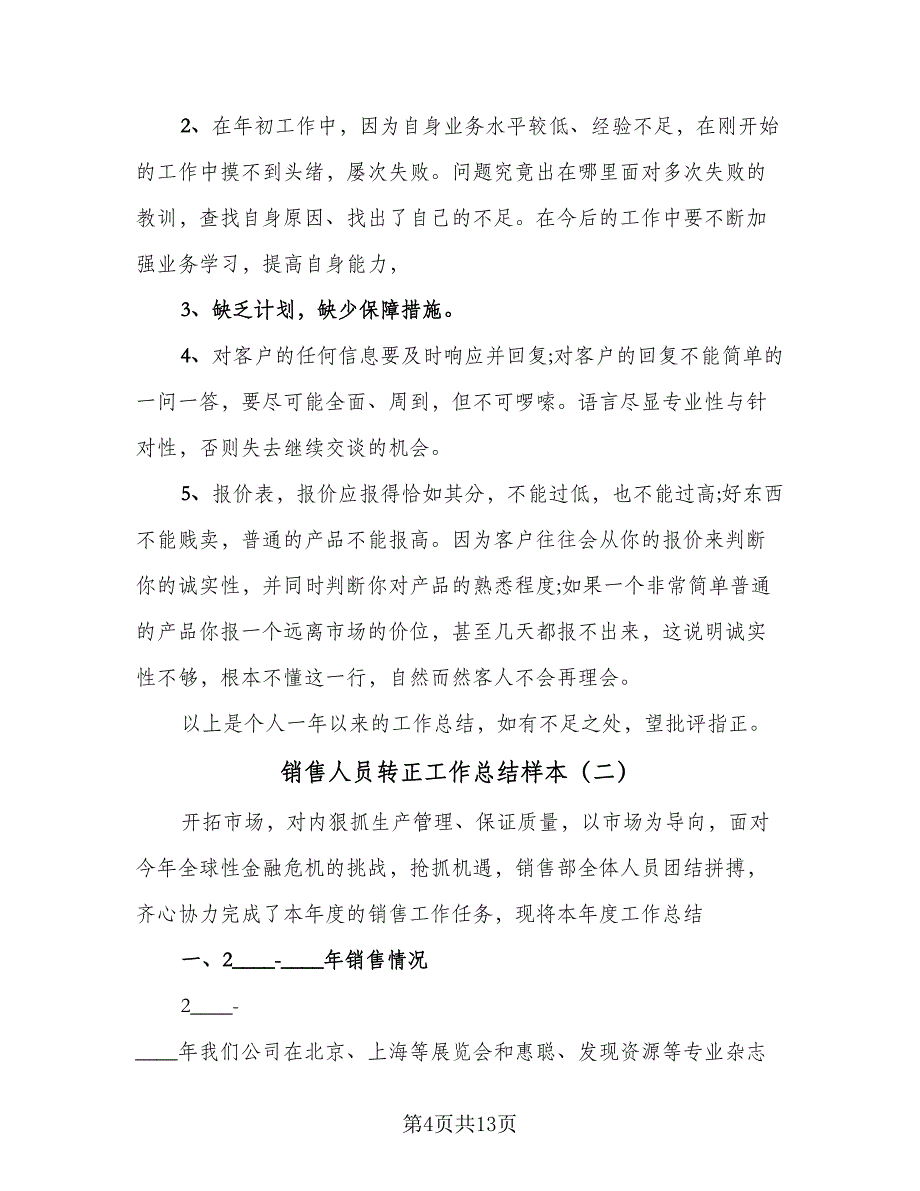 2、在年初工作中，因为自身业务水平较低、经验不足，在刚开始
的工作中摸不到头绪，屡次失败。问题究竟出在哪里面对多次失败的
教训，查找自身原因、找出了自己的不足。在今后的工作中要不断加
强业务学习，提高自身能力，
3、缺乏计划，缺少保障措施。
4、对客户的任何信息要及时响应并回复;对客户的回复不能简单的
一问一答，要尽可能全面、周到，但不可啰嗦。语言尽显专业性与针
对性，否则失去继续交谈的机会。
5、报价表，报价应报得恰如其分，不能过低，也不能过高;好东西
不能贱卖，普通的产品不能报高。因为客户往往会从你的报价来判断
你的诚实性，并同时判断你对产品的熟悉程度;如果一个非常简单普通
的产品你报一个远离市场的价位，甚至几天都报不出来，这说明诚实
性不够，根本不懂这一行，自然而然客人不会再理会。
以上是个人一年以来的工作总结，如有不足之处，望批评指正。
销售人员转正工作总结样本（二）
开拓市场，对内狠抓生产管理、保证质量，以市场为导向，面对
今年全球性金融危机的挑战，抢抓机遇，销售部全体人员团结拼搏，
齐心协力完成了本年度的销售工作任务，现将本年度工作总结
一、2____-____年销售情况
2____-
____年我们公司在北京、上海等展览会和惠聪、发现资源等专业杂志
第4页共13页